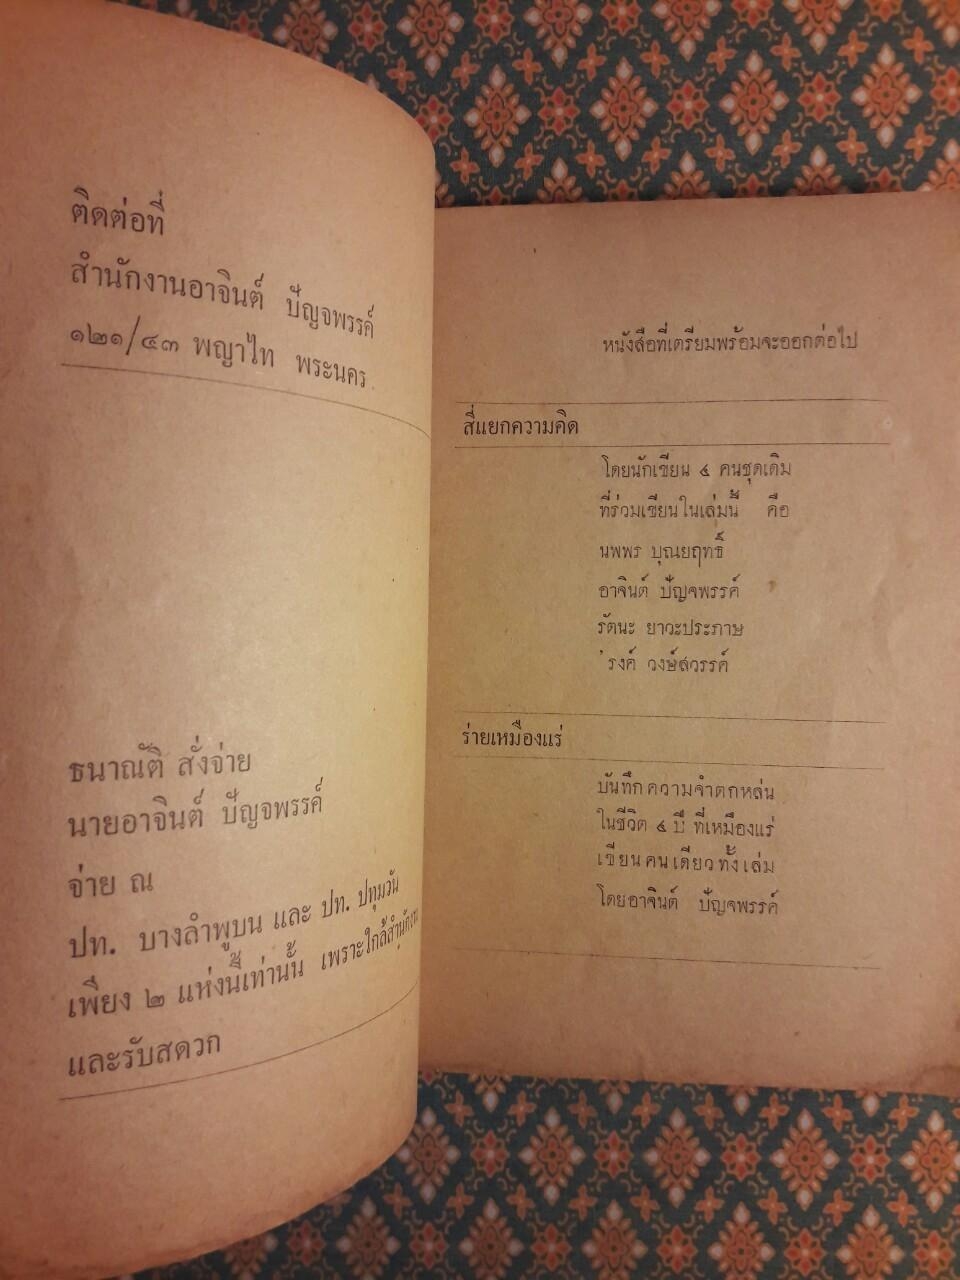 ติดต่อที่
สำนักงานอาจินต์ ปัญจพรรค์
๑๒๑/๔๓ พญาไท พระนคร
ธนาณัติ สั่งจ่าย
นายอาจินต์ ปัญจพรรค์
จ่าย ณ
ปท. บางลำพูบน และ ปท. ปทุมวัน
เพียง ๒ แห่งนี้เท่านั้น เพราะใกล้สำนักงาน
และรับสดวก
หนังสือที่เตรียมพร้อมจะออกต่อไป
สี่แยกความคิด
โดยนักเขียน ๔ คนชุดเดิม
ที่ร่วมเขียนในเล่มนี้ คือ
นพพร บุณยฤทธิ์
อาจินต์ ปัญจพรรค์
รัตนะ ยาวะประภาษ
'รงค์ วงษ์สวรรค์
ร่ายเหมืองแร่
บันทึกความจำตกหล่น
ในชีวิต ๔ ปี ที่เหมืองแร่
เขียนคนเดียวทั้งเล่ม
โดยอาจินต์ ปัญจพรรค์